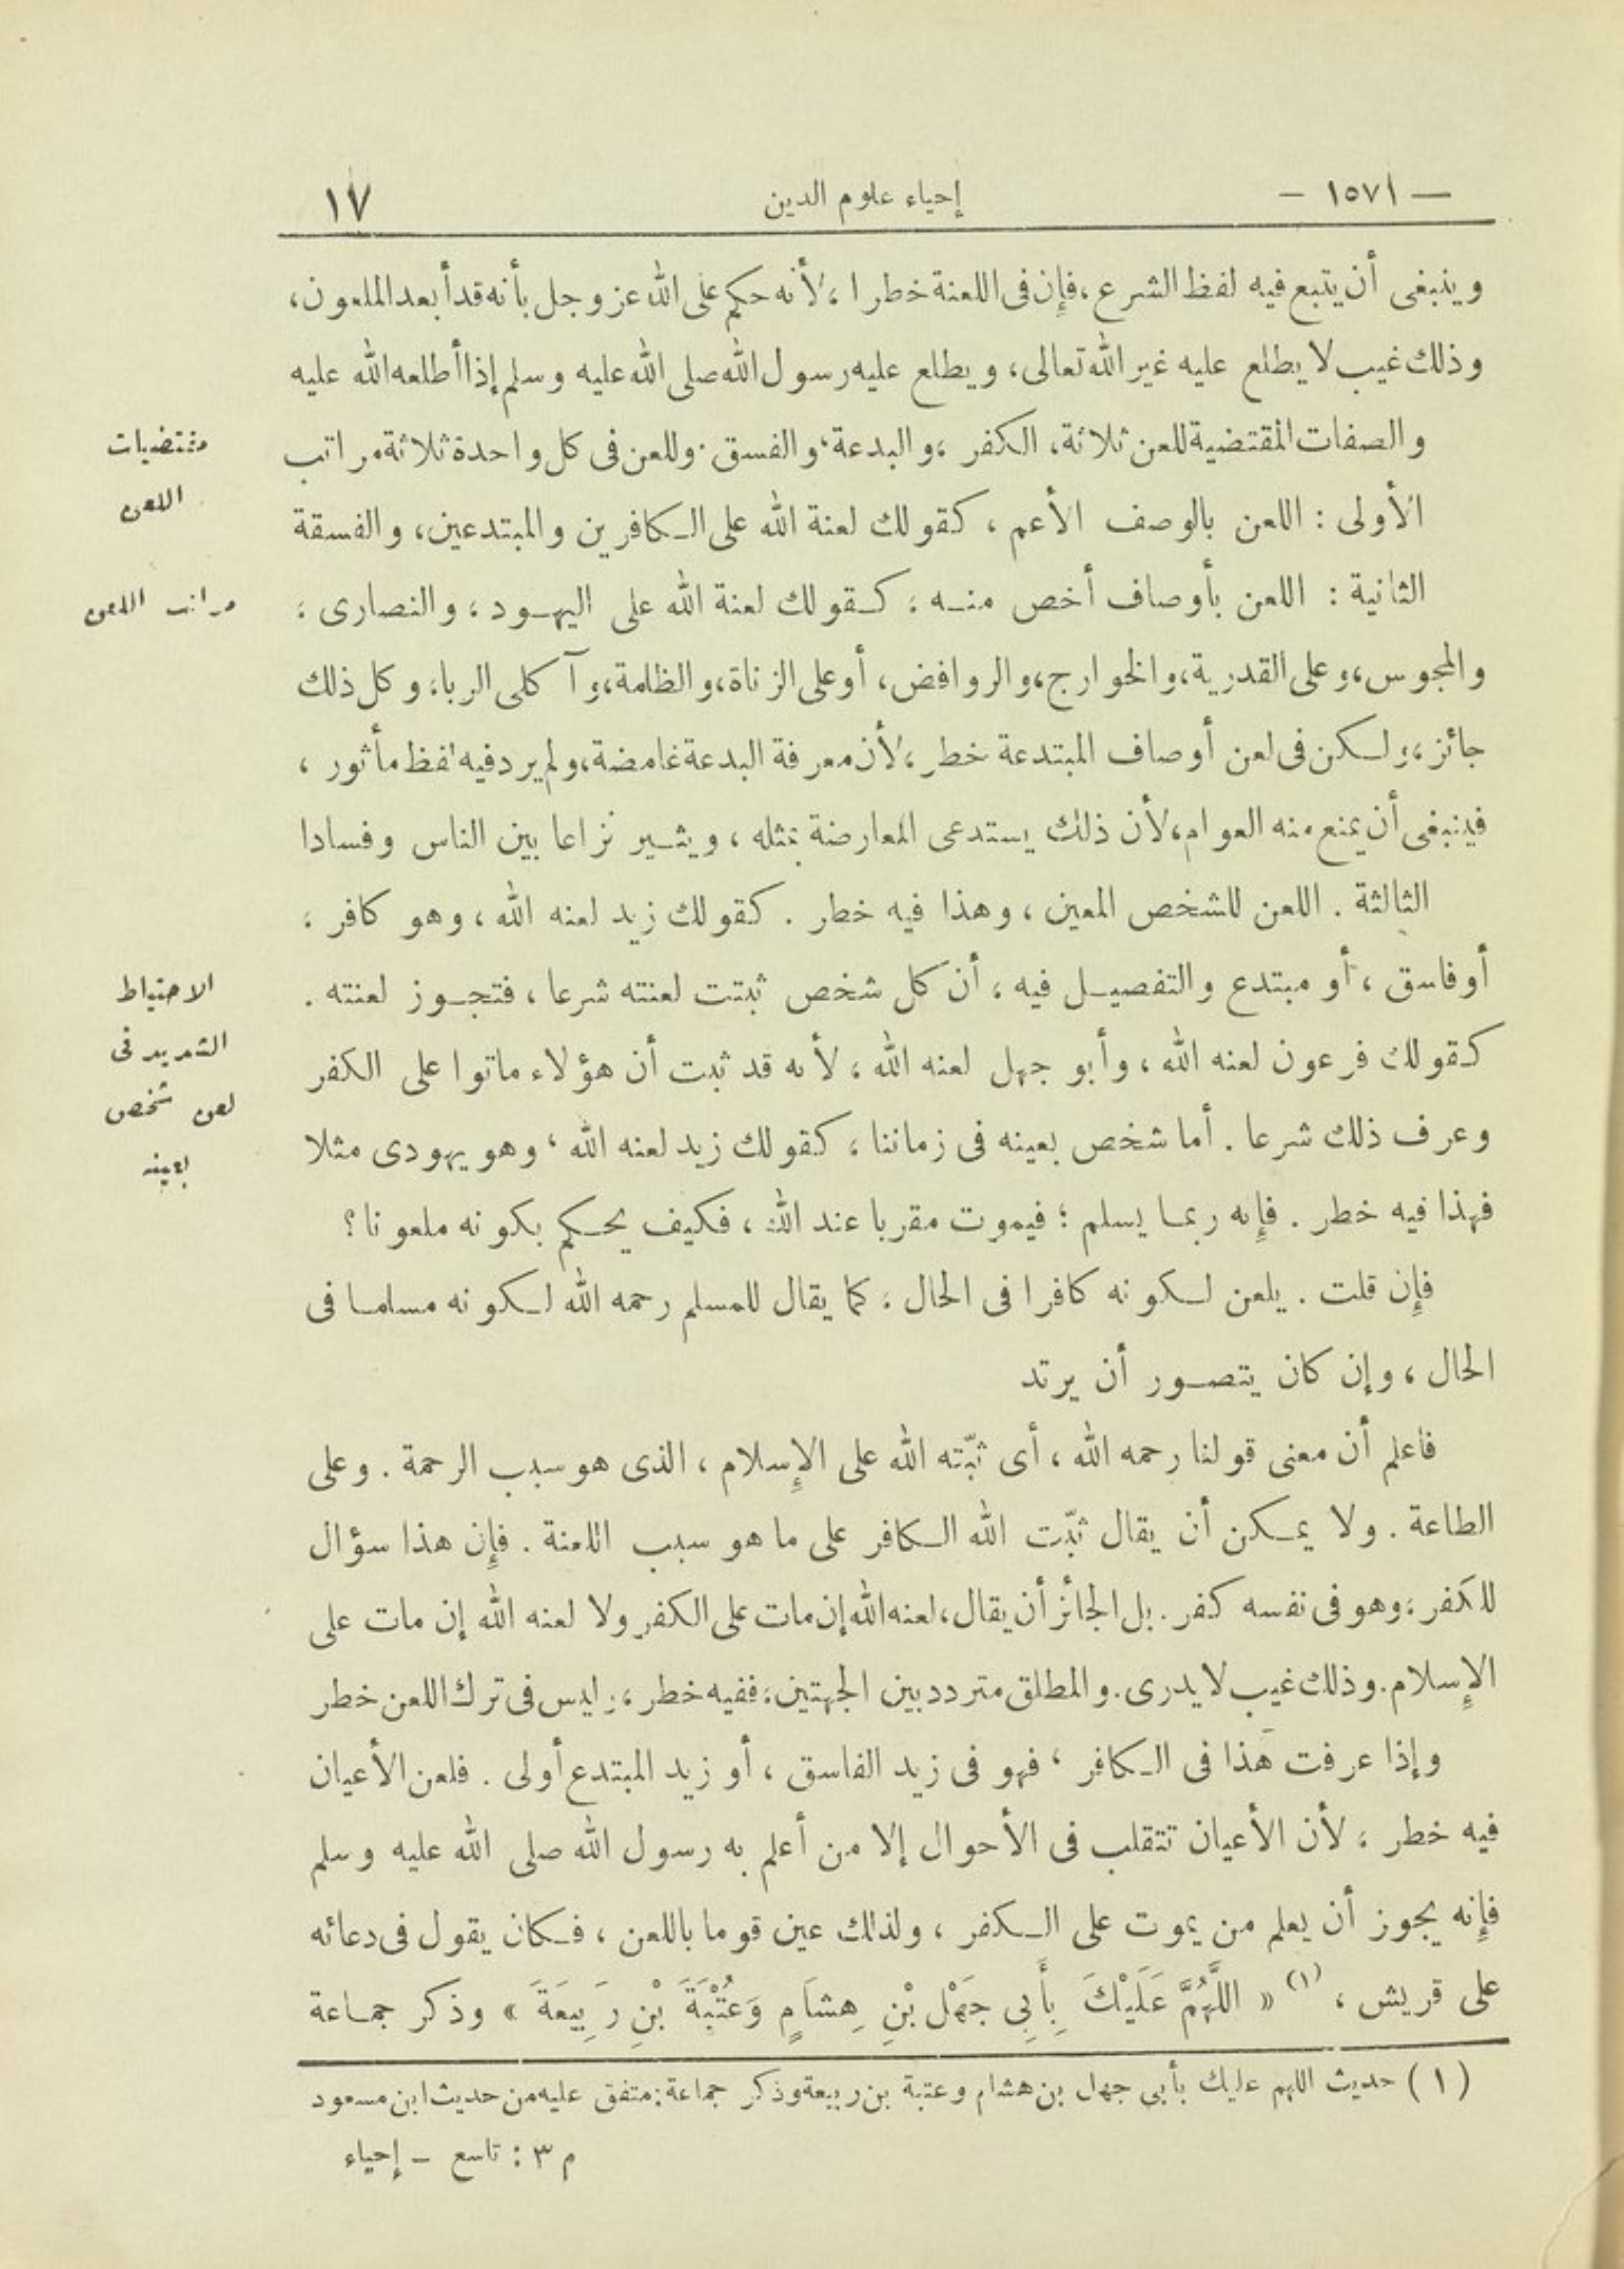 — ١٥٧١ —
إحياء علوم الدين
١٧
وينبغى أن يتبع فيه لفظ الشرع، فإن فى اللعنة خطرا، لأنه حكم على الله عز وجل بأنه قد أبعد الملعون،
وذلك غيب لا يطلع عليه غير الله تعالى، ويطلع عليه رسول الله صلى الله عليه وسلم إذا أطلعه الله عليه
والصفات المقتضية للعن ثلاثة، الكفر، والبدعة، والفسق. وللعن فى كل واحدة ثلاثة مراتب
الأولى : اللعن بالوصف الأعم ، كقولك لعنة الله على الكافرين والمبتدعين، والفسقة
الثانية : اللعن بأوصاف أخص منه ، كقولك لعنة الله على اليهود ، والنصارى ،
والمجوس، وعلى القدرية، والخوارج، والروافض، أو على الزناة، والظلمة، وآكلى الربا، وكل ذلك
جائز، ولكن فى لعن أوصاف المبتدعة خطر، لأن معرفة البدعة غامضة، ولم يرد فيه لفظ مأثور ،
فينبغى أن يمنع منه العوام، لأن ذلك يستدعى المعارضة بمثله ، ويثير نزاعا بين الناس وفسادا
الثالثة . اللعن للشخص المعين ، وهذا فيه خطر . كقولك زيد لعنه الله ، وهو كافر ،
أو فاسق ، أو مبتدع والتفصيل فيه ، أن كل شخص ثبتت لعنته شرعا ، فتجوز لعنته .
كقولك فرعون لعنه الله ، وأبو جهل لعنه الله ، لأنه قد ثبت أن هؤلاء ماتوا على الكفر
وعرف ذلك شرعا . أما شخص بعينه فى زماننا ، كقولك زيد لعنه الله ، وهو يهودى مثلا
فهذا فيه خطر . فإنه ربما يسلم ؛ فيموت مقربا عند الله ، فكيف يحكم بكونه ملعونا ؟
فإن قلت . يلعن لكونه كافرا فى الحال ، كما يقال للمسلم رحمه الله لكونه مسلما فى
الحال ، وإن كان يتصور أن يرتد
فاعلم أن معنى قولنا رحمه الله ، أى ثبّته الله على الإسلام ، الذى هو سبب الرحمة . وعلى
الطاعة . ولا يمكن أن يقال ثبّت الله الكافر على ما هو سبب اللعنة . فإن هذا سؤال
للكفر ، وهو فى نفسه كفر . بل الجائز أن يقال، لعنه الله إن مات على الكفر ولا لعنه الله إن مات على
الإسلام. وذلك غيب لا يدرى. والمطلق متردد بين الجهتين، ففيه خطر ، وليس فى ترك اللعن خطر
وإذا عرفت هذا فى الكافر ، فهو فى زيد الفاسق ، أو زيد المبتدع أولى . فلعن الأعيان
فيه خطر ، لأن الأعيان تتقلب فى الأحوال إلا من أعلم به رسول الله صلى الله عليه وسلم
فإنه يجوز أن يعلم من يموت على الكفر ، ولذلك عين قوما باللعن ، فكان يقول فى دعائه
على قريش ، (١) « اللَّهُمَّ عَلَيْكَ بِأَبِى جَهْلِ بْنِ هِشَامٍ وَعُتْبَةَ بْنِ رَبِيعَةَ » وذكر جماعة
مقتضيات
اللعن
مراتب اللعن
الاحتياط
الشديد فى
لعن شخص
بعينه
(١) حديث اللهم عليك بأبى جهل بن هشام وعتبة بن ربيعة وذكر جماعة: متفق عليه من حديث ابن مسعود
م ٣ : تاسع – إحياء